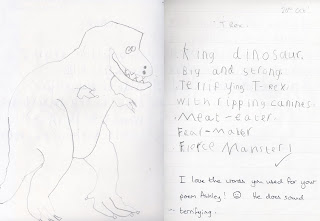 T Rex.
King dinosaur.
Big and strong.
Terrifying T-Rex
with ripping canines.
Meat-eater.
Fear-maker
Fierce Monster!
I love the words you used for your
poem Ashley! ☺ He does sound
terrifying.